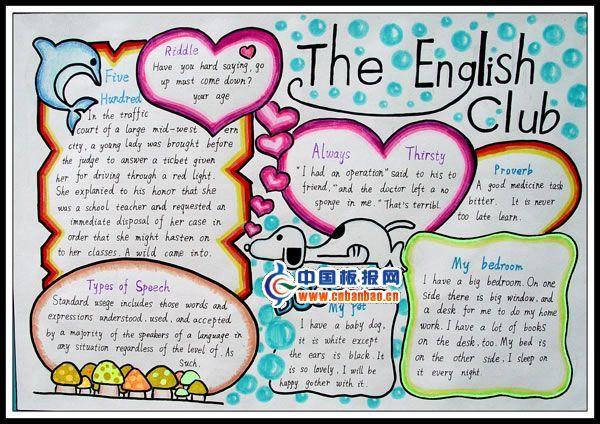 The English
Club
Riddle
Have you hard saying, go
up must come down?
your age
Five
Hundred
In the traffic
court of a large mid-west ern
city, a young lady was brought before
the judge to answer a ticbet given
her for driving through a red light.
She explanied to his honor that she
was a school teacher and requested an
immediate disposal of her case in
order that she might hasten on
to her classes. A wild came into.
Always Thirsty
"I had an operation" said to his to
friend, "and the doctor left a no
sponge in me." "That's terribl.
Proverb
A good medicine task
bitter. It is never
too late learn.
Types of Speech
Standard usege includes those words and
expressions understood, used, and accepted
by a majority of the speakers of a language in
any situation regardless of the level of. As
Such.
中国板报网
www.cnbanbao.cn
My Pet
I have a baby dog,
it is white except
the ears is black. It
is so lovely, I will be
happy gother with it.
My bedroom
I have a big bedroom. On one
side there is big window, and
a desk for me to do my home
work. I have a lot of books
on the desk, too. My bed is
on the other side. I sleep on
it every night.